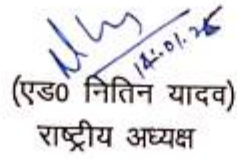 18.01.25
(एड0 नितिन यादव)
राष्ट्रीय अध्यक्ष